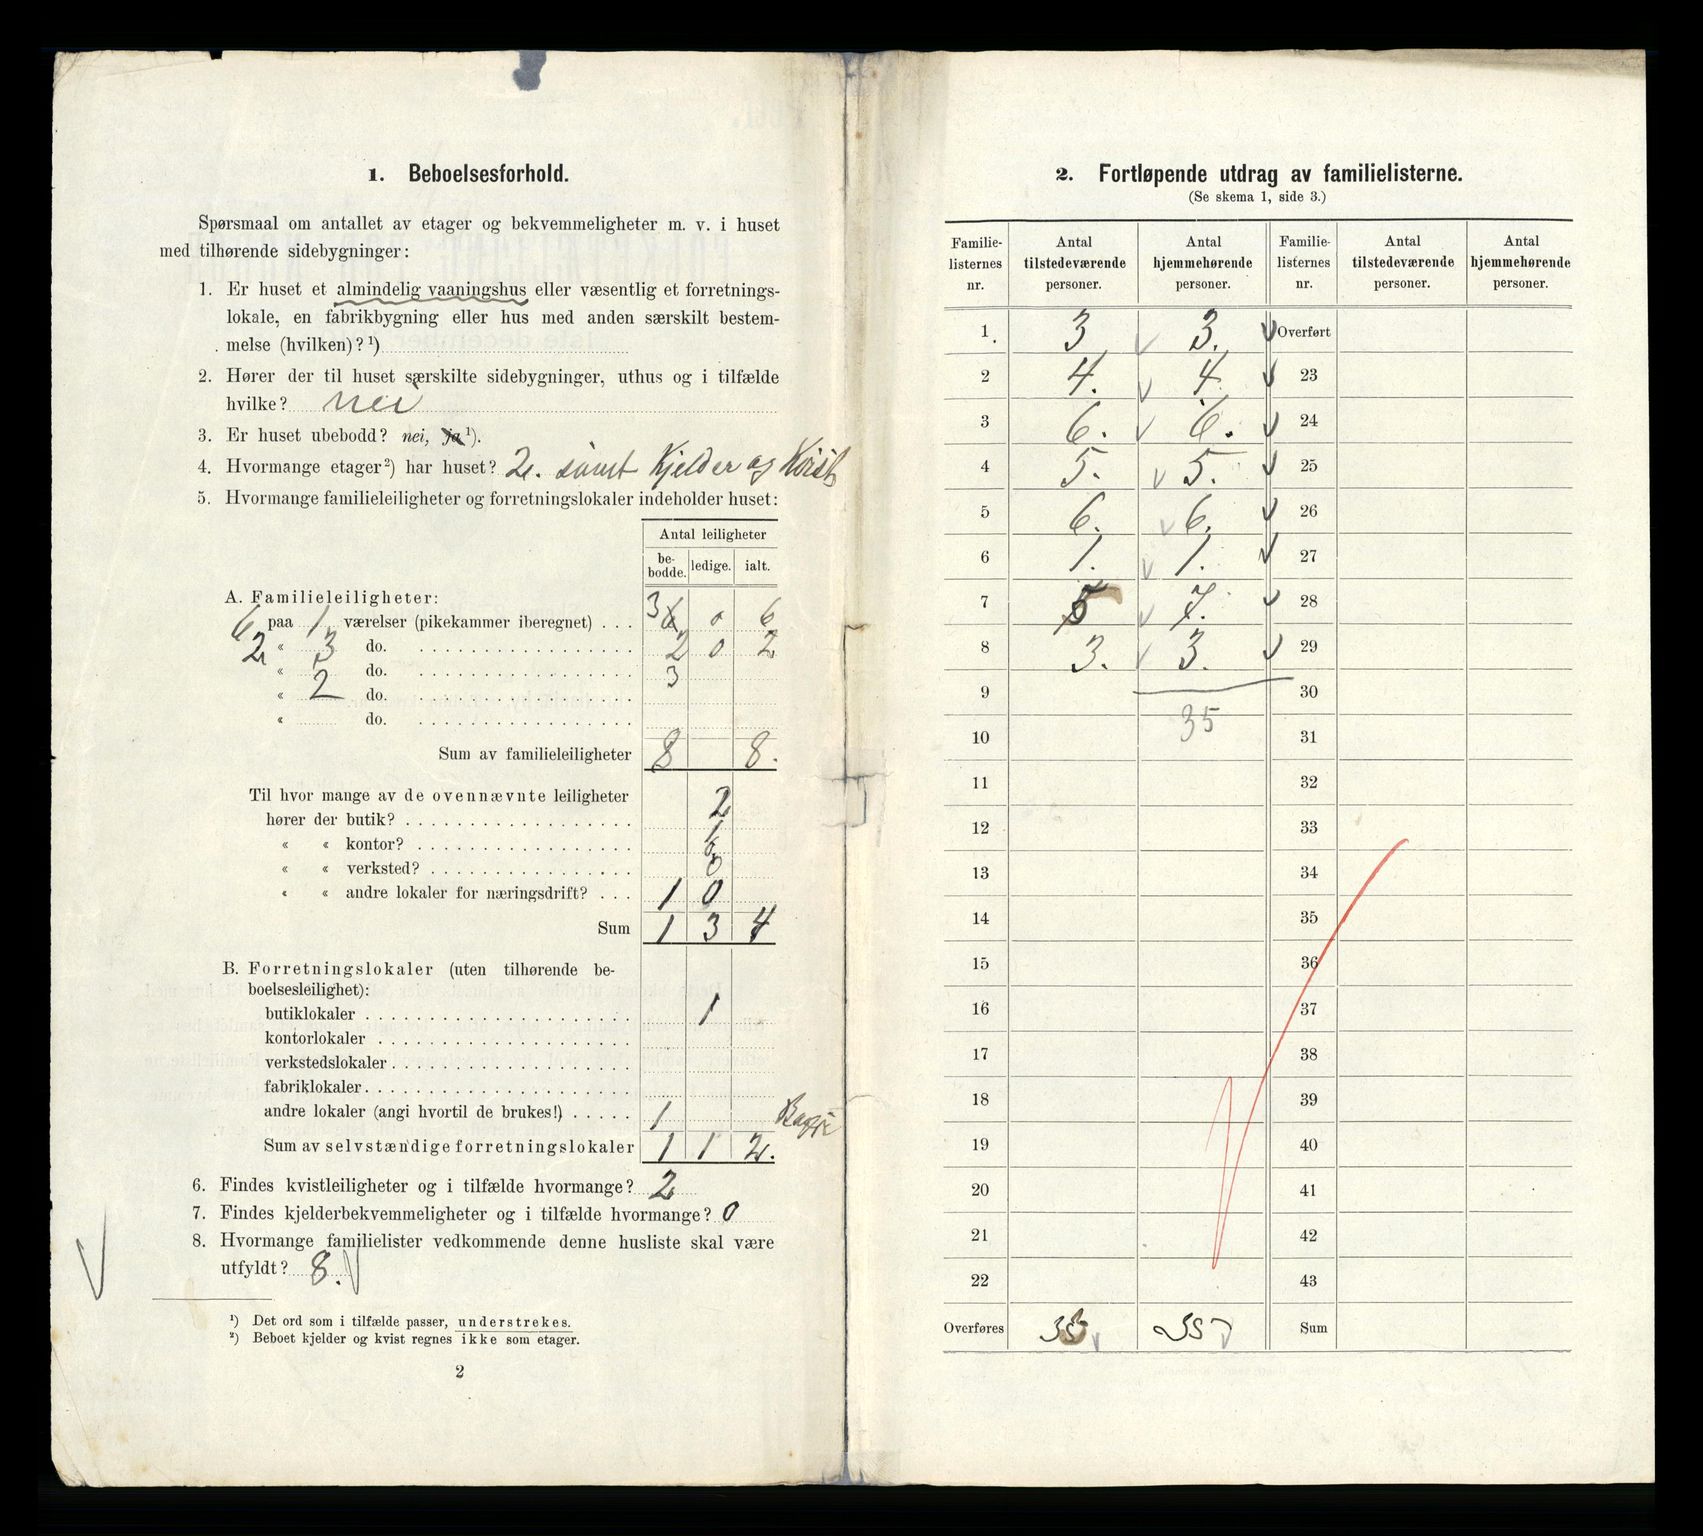 1. Beboelsesforhold.
Spørsmaal om antallet av etager og bekvemmeligheter m. v. i huset
med tilhørende sidebygninger:
1. Er huset et almindelig vaaningshus eller væsentlig et forretnings-
lokale, en fabrikbygning eller hus med anden særskilt bestem-
melse (hvilken)? ¹)
2. Hører der til huset særskilte sidebygninger, uthus og i tilfælde
hvilke? nei
3. Er huset ubebodd? nei, ja ¹).
4. Hvormange etager ²) har huset? 2. samt Kjelder og Kvist
5. Hvormange familieleiligheter og forretningslokaler indeholder huset:
Antal leiligheter
be-bodde. ledige. ialt.
A. Familieleiligheter:
6 paa 1 værelser (pikekammer iberegnet) . . . 3 6 0 6
2 « 3 do. 2 0 2
« do. 3
« 2 do.
« do.
Sum av familieleiligheter 8 8.
Til hvor mange av de ovennævnte leiligheter
hører der butik? 2
« « kontor? 1
« « verksted? 0
« « andre lokaler for næringsdrift? . . . 1 0
Sum 1 3 4
B. Forretningslokaler (uten tilhørende be-
boelsesleilighet):
butiklokaler 1
kontorlokaler
verkstedslokaler
fabriklokaler
andre lokaler (angi hvortil de brukes!) 1
Sum av selvstændige forretningslokaler 1 1 2.
6. Findes kvistleiligheter og i tilfælde hvormange? 2
7. Findes kjelderbekvemmeligheter og i tilfælde hvormange? 0
8. Hvormange familielister vedkommende denne husliste skal være
utfyldt? 8.
¹) Det ord som i tilfælde passer, understrekes.
²) Beboet kjelder og kvist regnes ikke som etager.
2
2. Fortløpende utdrag av familielisterne.
(Se skema 1, side 3.)
Familie-listernes nr. Antal tilstedeværende personer. Antal hjemmehørende personer. Familie-listernes nr. Antal tilstedeværende personer. Antal hjemmehørende personer.
1. 3 3. Overført
2 4. 4 23
3 6. 6. 24
4 5. 5. 25
5 6. 6. 26
6 1. 1. 27
7 5 7. 28
8 3. 3. 29
9 30
10 35 31
11 32
12 33
13 34
14 35
15 36
16 37
17 38
18 39
19 40
20 41
21 42
22 43
Overføres 35 35 Sum